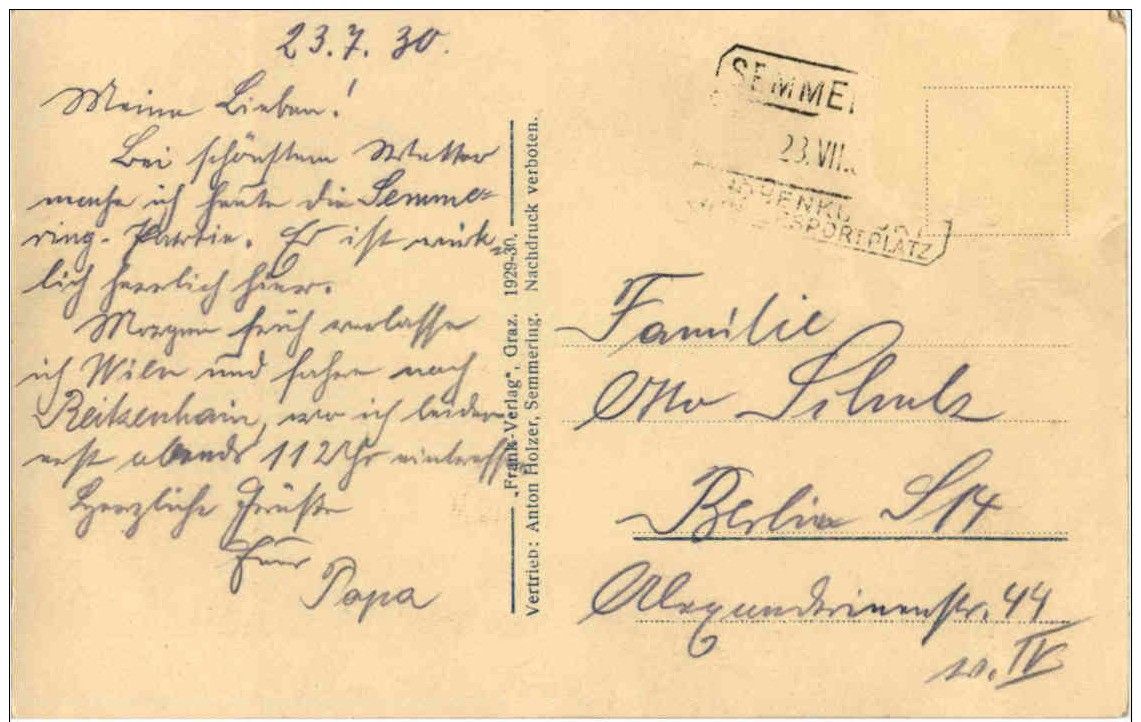 23.7.30.
Meine Lieben!
Bei schönstem Wetter
mache ich heute die Semme-
ring-Partie. Es ist wirk-
lich herrlich hier.
Morgen früh verlasse
ich Wien und fahre nach
Reitzenhain, wo ich leider
erst abends 11 Uhr eintreffe.
Herzliche Grüße
Euer
Papa
„Frank-Verlag", Graz. 1929-30.
Vertrieb: Anton Holzer, Semmering. Nachdruck verboten.
SEMME
23.VII.
SPORTPLATZ
Familie
Otto Schulz
Berlin S14
Alexandrinenstr. 44
v. IV